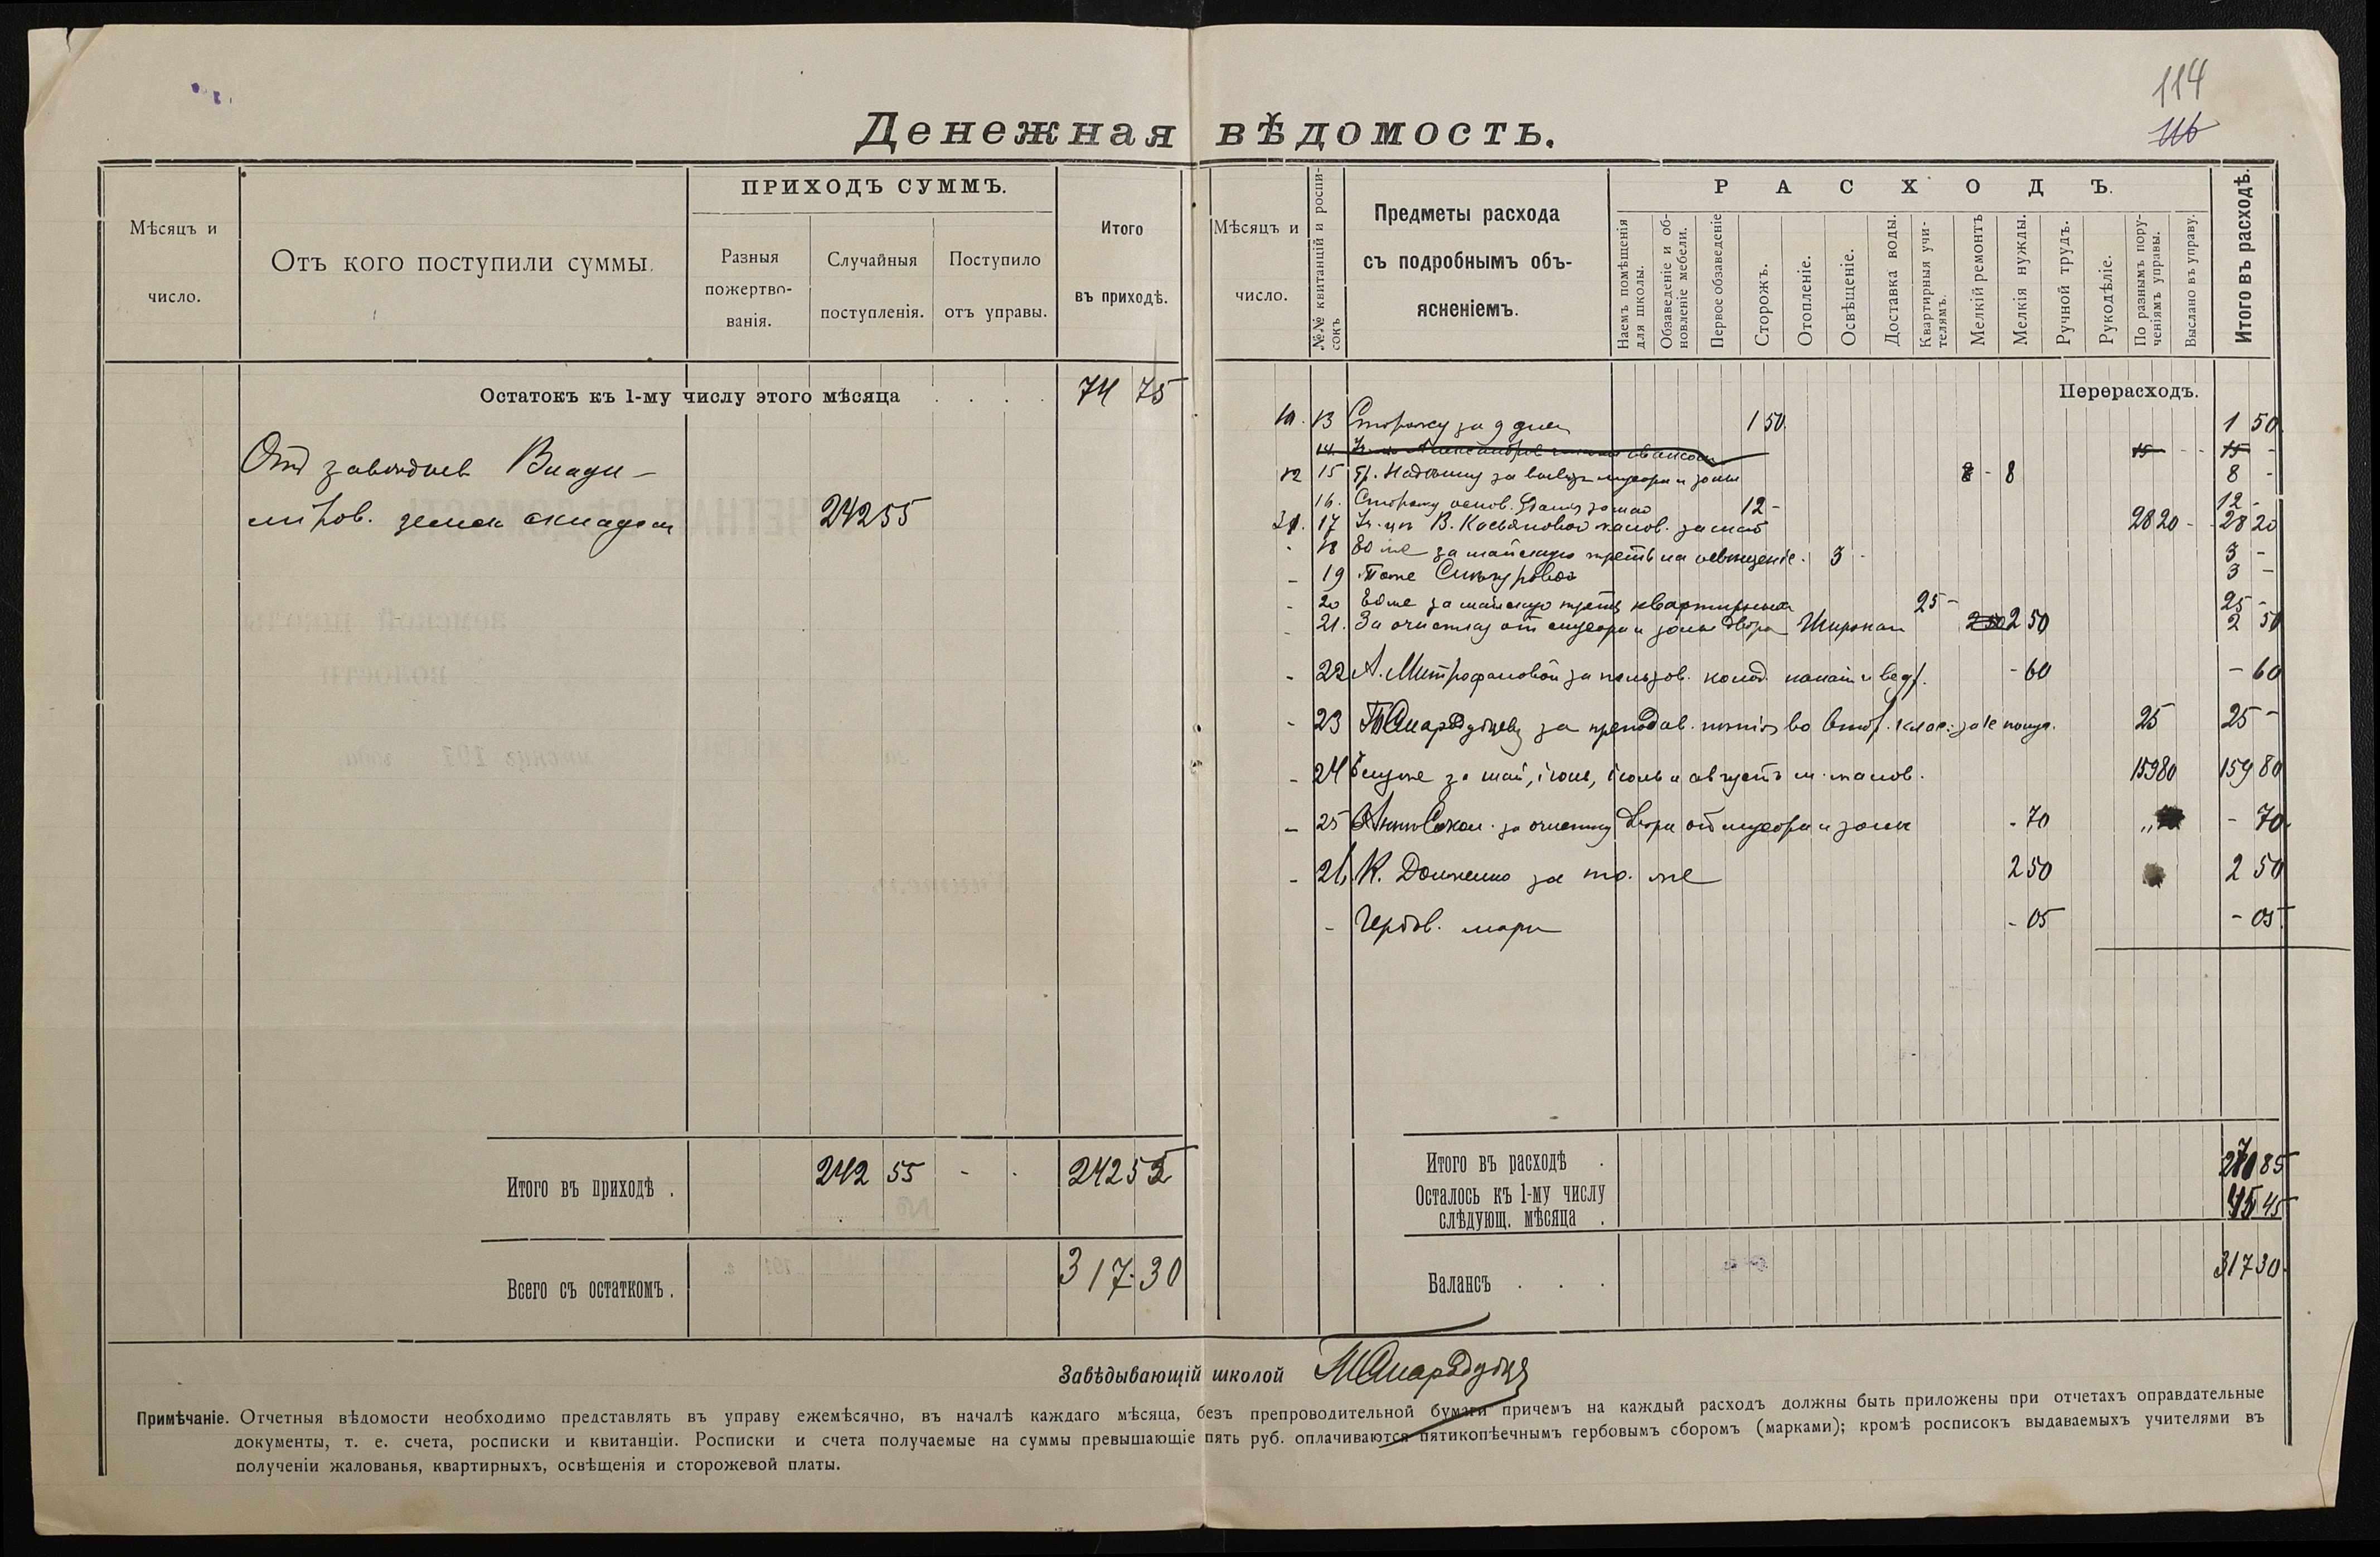 114
116
Денежная вѣдомость.
Мѣсяцъ и число.
Отъ кого поступили суммы.
ПРИХОДЪ СУММЪ.
Разныя пожертво-ванія.
Случайныя поступленія.
Поступило отъ управы.
Итого въ приходѣ.
Остатокъ къ 1-му числу этого мѣсяца . . . . 74 75
Влади-
міров. земск складом 242 55
Итого въ приходѣ . 242 55 - - 242 55
Всего съ остаткомъ . 317.30
Мѣсяцъ и число.
№№ квитанцій и роспи-сокъ
Предметы расхода съ подробнымъ объ-ясненіемъ.
РАСХОДЪ.
Наемъ помѣщенія для школы.
Обзаведеніе и об-новленіе мебели.
Первое обзаведеніе
Сторожъ.
Отопленіе.
Освѣщеніе.
Доставка воды.
Квартирныя учи-телямъ.
Мелкій ремонтъ
Мелкія нужды.
Ручной трудъ.
Рукодѣліе.
По разнымъ пору-ченіямъ управы.
Выслано въ управу.
Итого въ расходѣ.
Перерасходъ.
10. 13 Сторожу за 9 дней 1 50 1 50
14 15 - - 15 -
12 15 за вывозъ мусора и золы 8 - 8 8 -
16. Сторожу 12 - 12 -
31. 17 В. Касьяновой жалов. за май 28 20 - 28 20
- 18 Ей же за майскую треть на освѣщеніе. 3 - 3 -
- 19 Тоже 3 -
- 20 Ей же за майскую треть квартирныя 25 - 25 -
- 21. За очистку от мусора и золы двора 2 50 2 50 2 50
- 22 А. Митрофановой за пользов. колод. канат и вед. - 60 - 60
- 23 за преподав. 25 25 -
- 24 Ему же за май, іюнь, іюль и августъ м. жалов. 159 80 159 80
- 25 за очистку двора от мусора и золы - 70 - 70
- 26 К. Долженко за то же 2 50 2 50
- Гербов. марк - 05 - 05
Итого въ расходѣ . 270 85
Осталось къ 1-му числу слѣдующ. мѣсяца . 45 45
Балансъ . . . 317 30
Завѣдывающій школой
Примѣчаніе. Отчетныя вѣдомости необходимо представлять въ управу ежемѣсячно, въ началѣ каждаго мѣсяца, безъ препроводительной бумаги причемъ на каждый расходъ должны быть приложены при отчетахъ оправдательные
документы, т. е. счета, росписки и квитанціи. Росписки и счета получаемые на суммы превышающіе пять руб. оплачиваются пятикопѣечнымъ гербовымъ сборомъ (марками); кромѣ росписокъ выдаваемыхъ учителями въ
полученіи жалованья, квартирныхъ, освѣщенія и сторожевой платы.